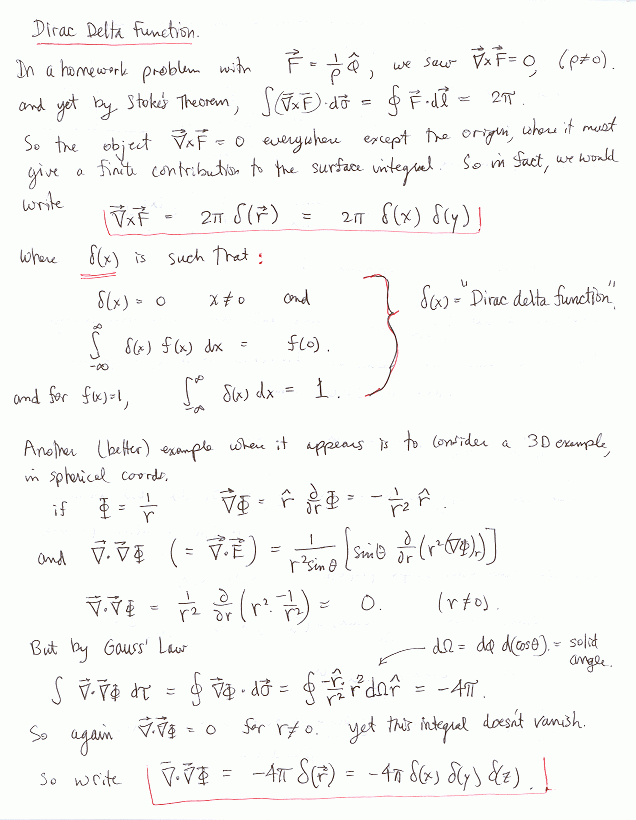 Dirac Delta Function.
In a homework problem with F⃗ = 1/ρ φ̂, we saw ∇⃗×F⃗ = 0, (ρ≠0).
and yet by Stoke's Theorem, ∫(∇⃗×F⃗)·dσ⃗ = ∮ F⃗·dl⃗ = 2π.
So the object ∇⃗×F⃗ = 0 everywhere except the origin, where it must
give a finite contribution to the surface integral. So in fact, we would
write ∇⃗×F⃗ = 2π δ(r⃗) = 2π δ(x) δ(y)
where δ(x) is such that:
δ(x) = 0 x≠0 and
δ(x) = "Dirac delta function".
∫_{-∞}^{∞} δ(x) f(x) dx = f(0).
and for f(x)=1, ∫_{-∞}^{∞} δ(x) dx = 1.
Another (better) example where it appears is to consider a 3D example,
in spherical coords.
if Φ = 1/r ∇⃗Φ = r̂ ∂/∂r Φ = - 1/r² r̂.
and ∇⃗·∇⃗Φ (= ∇⃗·E⃗) = 1/(r² sinθ) [sinθ ∂/∂r (r²(∇Φ)_r)]
∇⃗·∇⃗Φ = 1/r² ∂/∂r (r²· -1/r²) = 0. (r≠0).
But by Gauss' Law
dΩ = dφ d(cosθ). = solid
angle.
∫ ∇⃗·∇⃗Φ dτ = ∮ ∇⃗Φ·dσ⃗ = ∮ -r̂/r² · r² dΩ r̂ = -4π.
So again ∇⃗·∇⃗Φ = 0 for r≠0. yet this integral doesn't vanish.
So write ∇⃗·∇⃗Φ = -4π δ(r⃗) = -4π δ(x) δ(y) δ(z).